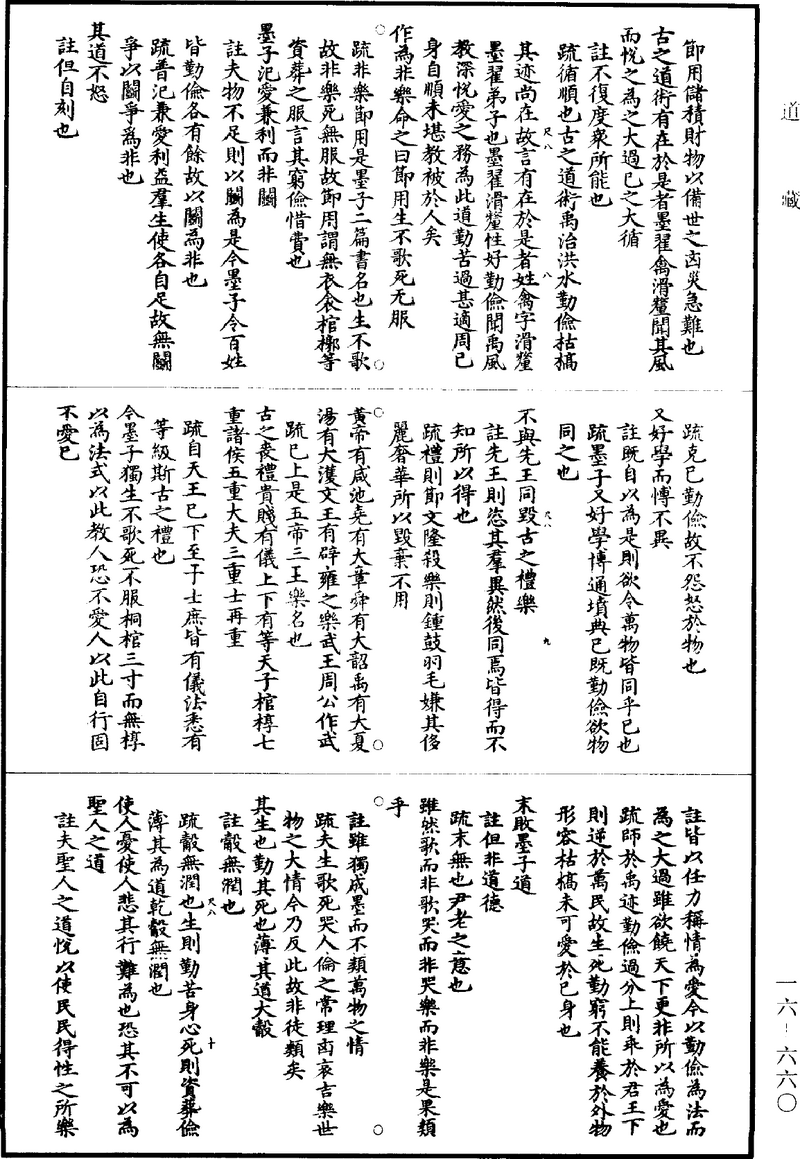 道藏
節用儲積財物以備世之凶災急難也
古之道術有在於是者墨翟禽滑釐聞其風
而悅之為之大過已之大循
註不復度衆所能也
疏循順也古之道術禹治洪水勤儉枯槁
其迹尚在故言有在於是者姓禽字滑釐
墨翟弟子也墨翟滑釐性好勤儉聞禹風
教深悅愛之務為此道勤苦過甚適周己
身自順未堪教被於人矣
作為非樂命之曰節用生不歌死无服
疏非樂節用是墨子二篇書名也生不歌
故非樂死無服故節用謂無衣衾棺槨等
資葬之服言其窮儉惜費也
墨子汜愛兼利而非鬭
註夫物不足則以鬭為是今墨子令百姓
皆勤儉各有餘故以鬭為非也
疏普汜兼愛利益羣生使各自足故無鬭
爭以鬭爭為非也
其道不怒
註但自刻也
疏克己勤儉故不怨怒於物也
又好學而博不異
註既自以為是則欲令萬物皆同乎已也
疏墨子又好學博通墳典已既勤儉欲物
同之也
不與先王同毀古之禮樂
註先王則恣其羣異然後同焉皆得而不
知所以得也
疏禮則節文隆殺樂則鍾鼓羽毛嫌其侈
麗奢華所以毀棄不用
黃帝有咸池堯有大章舜有大韶禹有大夏
湯有大濩文王有辟雍之樂武王周公作武
疏已上是五帝三王樂名也
古之喪禮貴賤有儀上下有等天子棺椁七
重諸侯五重大夫三重士再重
疏自天王已下至于士庶皆有儀法悉有
等級斯古之禮也
今墨子獨生不歌死不服桐棺三寸而無椁
以為法式以此教人恐不愛人以此自行固
不愛己
註皆以任力稱情為愛今以勤儉為法而
為之大過雖欲饒天下更非所以為愛也
疏師於禹迹勤儉過分上則乖於君王下
則逆於萬民故生死勤窮不能養於外物
形容枯槁未可愛於己身也
末敗墨子道
註但非道德
疏末無也尹老之意也
雖然歌而非歌哭而非哭樂而非樂是果類
乎
註雖獨成墨而不類萬物之情
疏夫生歌死哭人倫之常理凶哀吉樂世
物之大情今乃反此故非徒類矣
其生也勤其死也薄其道大觳
註觳無潤也
疏觳無潤也生則勤苦身心死則資葬儉
薄其為道乾觳無潤也
使人憂使人悲其行難為也恐其不可以為
聖人之道
註夫聖人之道悅以使民民得性之所樂
尺八
八
尺八
九
尺八
十
一六—六六〇